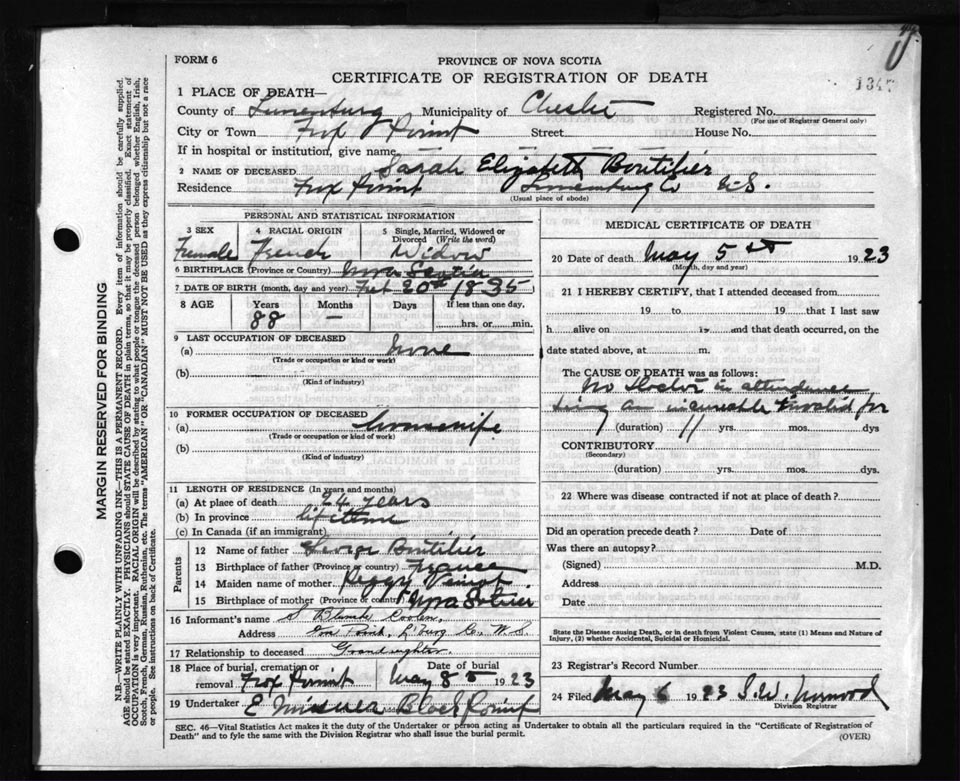 FORM 6
PROVINCE OF NOVA SCOTIA
CERTIFICATE OF REGISTRATION OF DEATH
1347
1 PLACE OF DEATH—
County of Lunenburg Municipality of Chester Registered No.
(For use of Registrar General only)
City or Town Fox Point Street House No.
If in hospital or institution, give name
2 NAME OF DECEASED Sarah Elizabeth Boutilier
Residence Fox Point Lunenburg Co N.S.
(Usual place of abode)
PERSONAL AND STATISTICAL INFORMATION
3 SEX 4 RACIAL ORIGIN 5 Single, Married, Widowed or Divorced (Write the word)
Female French Widow
6 BIRTHPLACE (Province or Country) Nova Scotia
7 DATE OF BIRTH (month, day and year) Feb 20th 1835
8 AGE Years Months Days If less than one day,
88 — hrs. or min.
9 LAST OCCUPATION OF DECEASED
(a) None
(Trade or occupation or kind of work)
(b)
(Kind of industry)
10 FORMER OCCUPATION OF DECEASED
(a) housewife
(Trade or occupation or kind of work)
(b)
(Kind of industry)
11 LENGTH OF RESIDENCE (In years and months)
(a) At place of death 24 years
(b) In province lifetime
(c) In Canada (if an immigrant)
Parents
12 Name of father George Boutilier
13 Birthplace of father (Province or Country) France
14 Maiden name of mother Peggy Veinot
15 Birthplace of mother (Province or country) Nova Scotia
16 Informant's name S Blanche Coolen
Address Fox Point, L'burg Co. N.S.
17 Relationship to deceased Grandaughter
18 Place of burial, cremation or removal Fox Point Date of burial May 8th 1923
19 Undertaker E Blockpoint
MEDICAL CERTIFICATE OF DEATH
20 Date of death May 5th 1923
(Month, day and year)
21 I HEREBY CERTIFY, that I attended deceased from
19 to 19 that I last saw
h alive on 19 and that death occurred, on the
date stated above, at m.
The CAUSE OF DEATH was as follows:
No Doctor in attendence
being an incureable invalid for
(duration) 11 yrs. mos. dys
CONTRIBUTORY
(Secondary)
(duration) yrs. mos. dys.
22 Where was disease contracted if not at place of death?
Did an operation precede death? Date of
Was there an autopsy?
(Signed) M.D.
Address
Date
State the Disease causing Death, or in death from Violent Causes, state (1) Means and Nature of Injury, (2) whether Accidental, Suicidal or Homicidal.
23 Registrar's Record Number
24 Filed May 6 1923 S.W. Norwood
Division Registrar
SEC. 46—Vital Statistics Act makes it the duty of the Undertaker or person acting as Undertaker to obtain all the particulars required in the "Certificate of Registration of
Death" and to fyle the same with the Division Registrar who shall issue the burial permit.
(OVER)
MARGIN RESERVED FOR BINDING
N.B.—WRITE PLAINLY WITH UNFADING INK—THIS IS A PERMANENT RECORD. Every item of information should be carefully supplied.
AGE should be stated EXACTLY. PHYSICIANS should STATE CAUSE OF DEATH in plain terms, so that it may be properly classified. Exact statement of
OCCUPATION is very important. RACIAL ORIGIN will be described by stating to what people or tongue the deceased person belonged whether English, Irish,
Scotch, French, German, Russian, Ruthenian, etc. The terms "AMERICAN" OR "CANADIAN" MUST NOT BE USED as they express citizenship but not a race
or people. See instructions on back of Certificate.